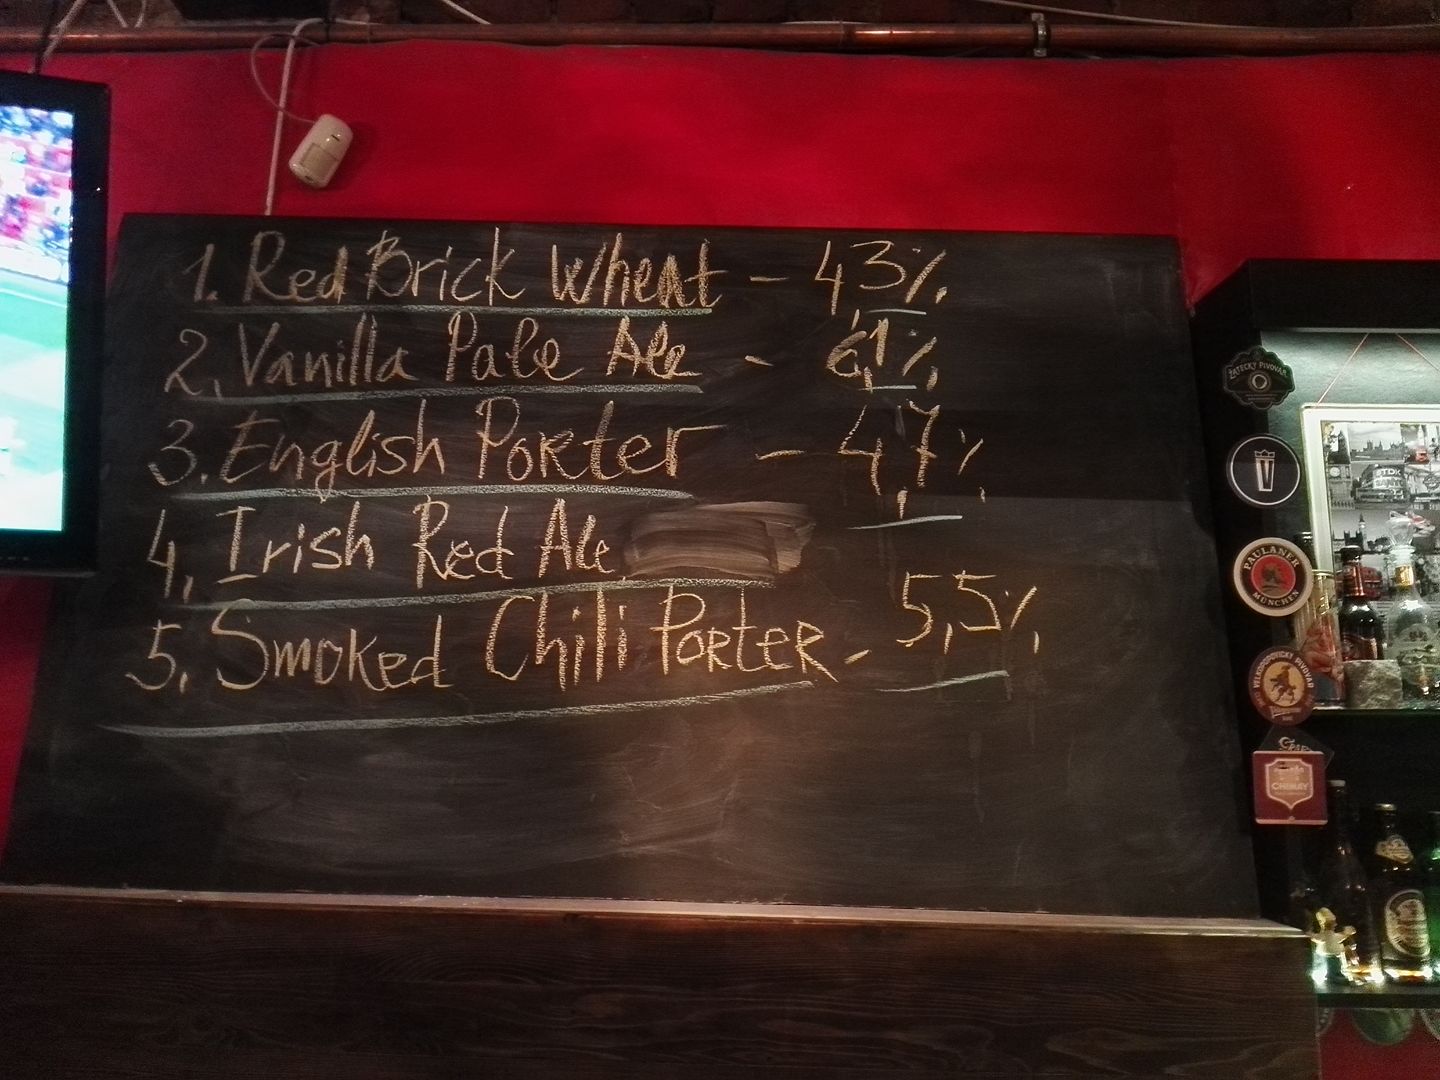 1. Red Brick Wheat - 4,3%
2, Vanilla Pale Ale - 6,1%
3. English Porter - 4,7%
4, Irish Red Ale
5, Smoked Chili Porter - 5,5%
ŽATECKÝ PIVOVAR
PAULANER
MÜNCHEN
VELKOPOPOVICKÝ PIVOVAR
CHIMAY